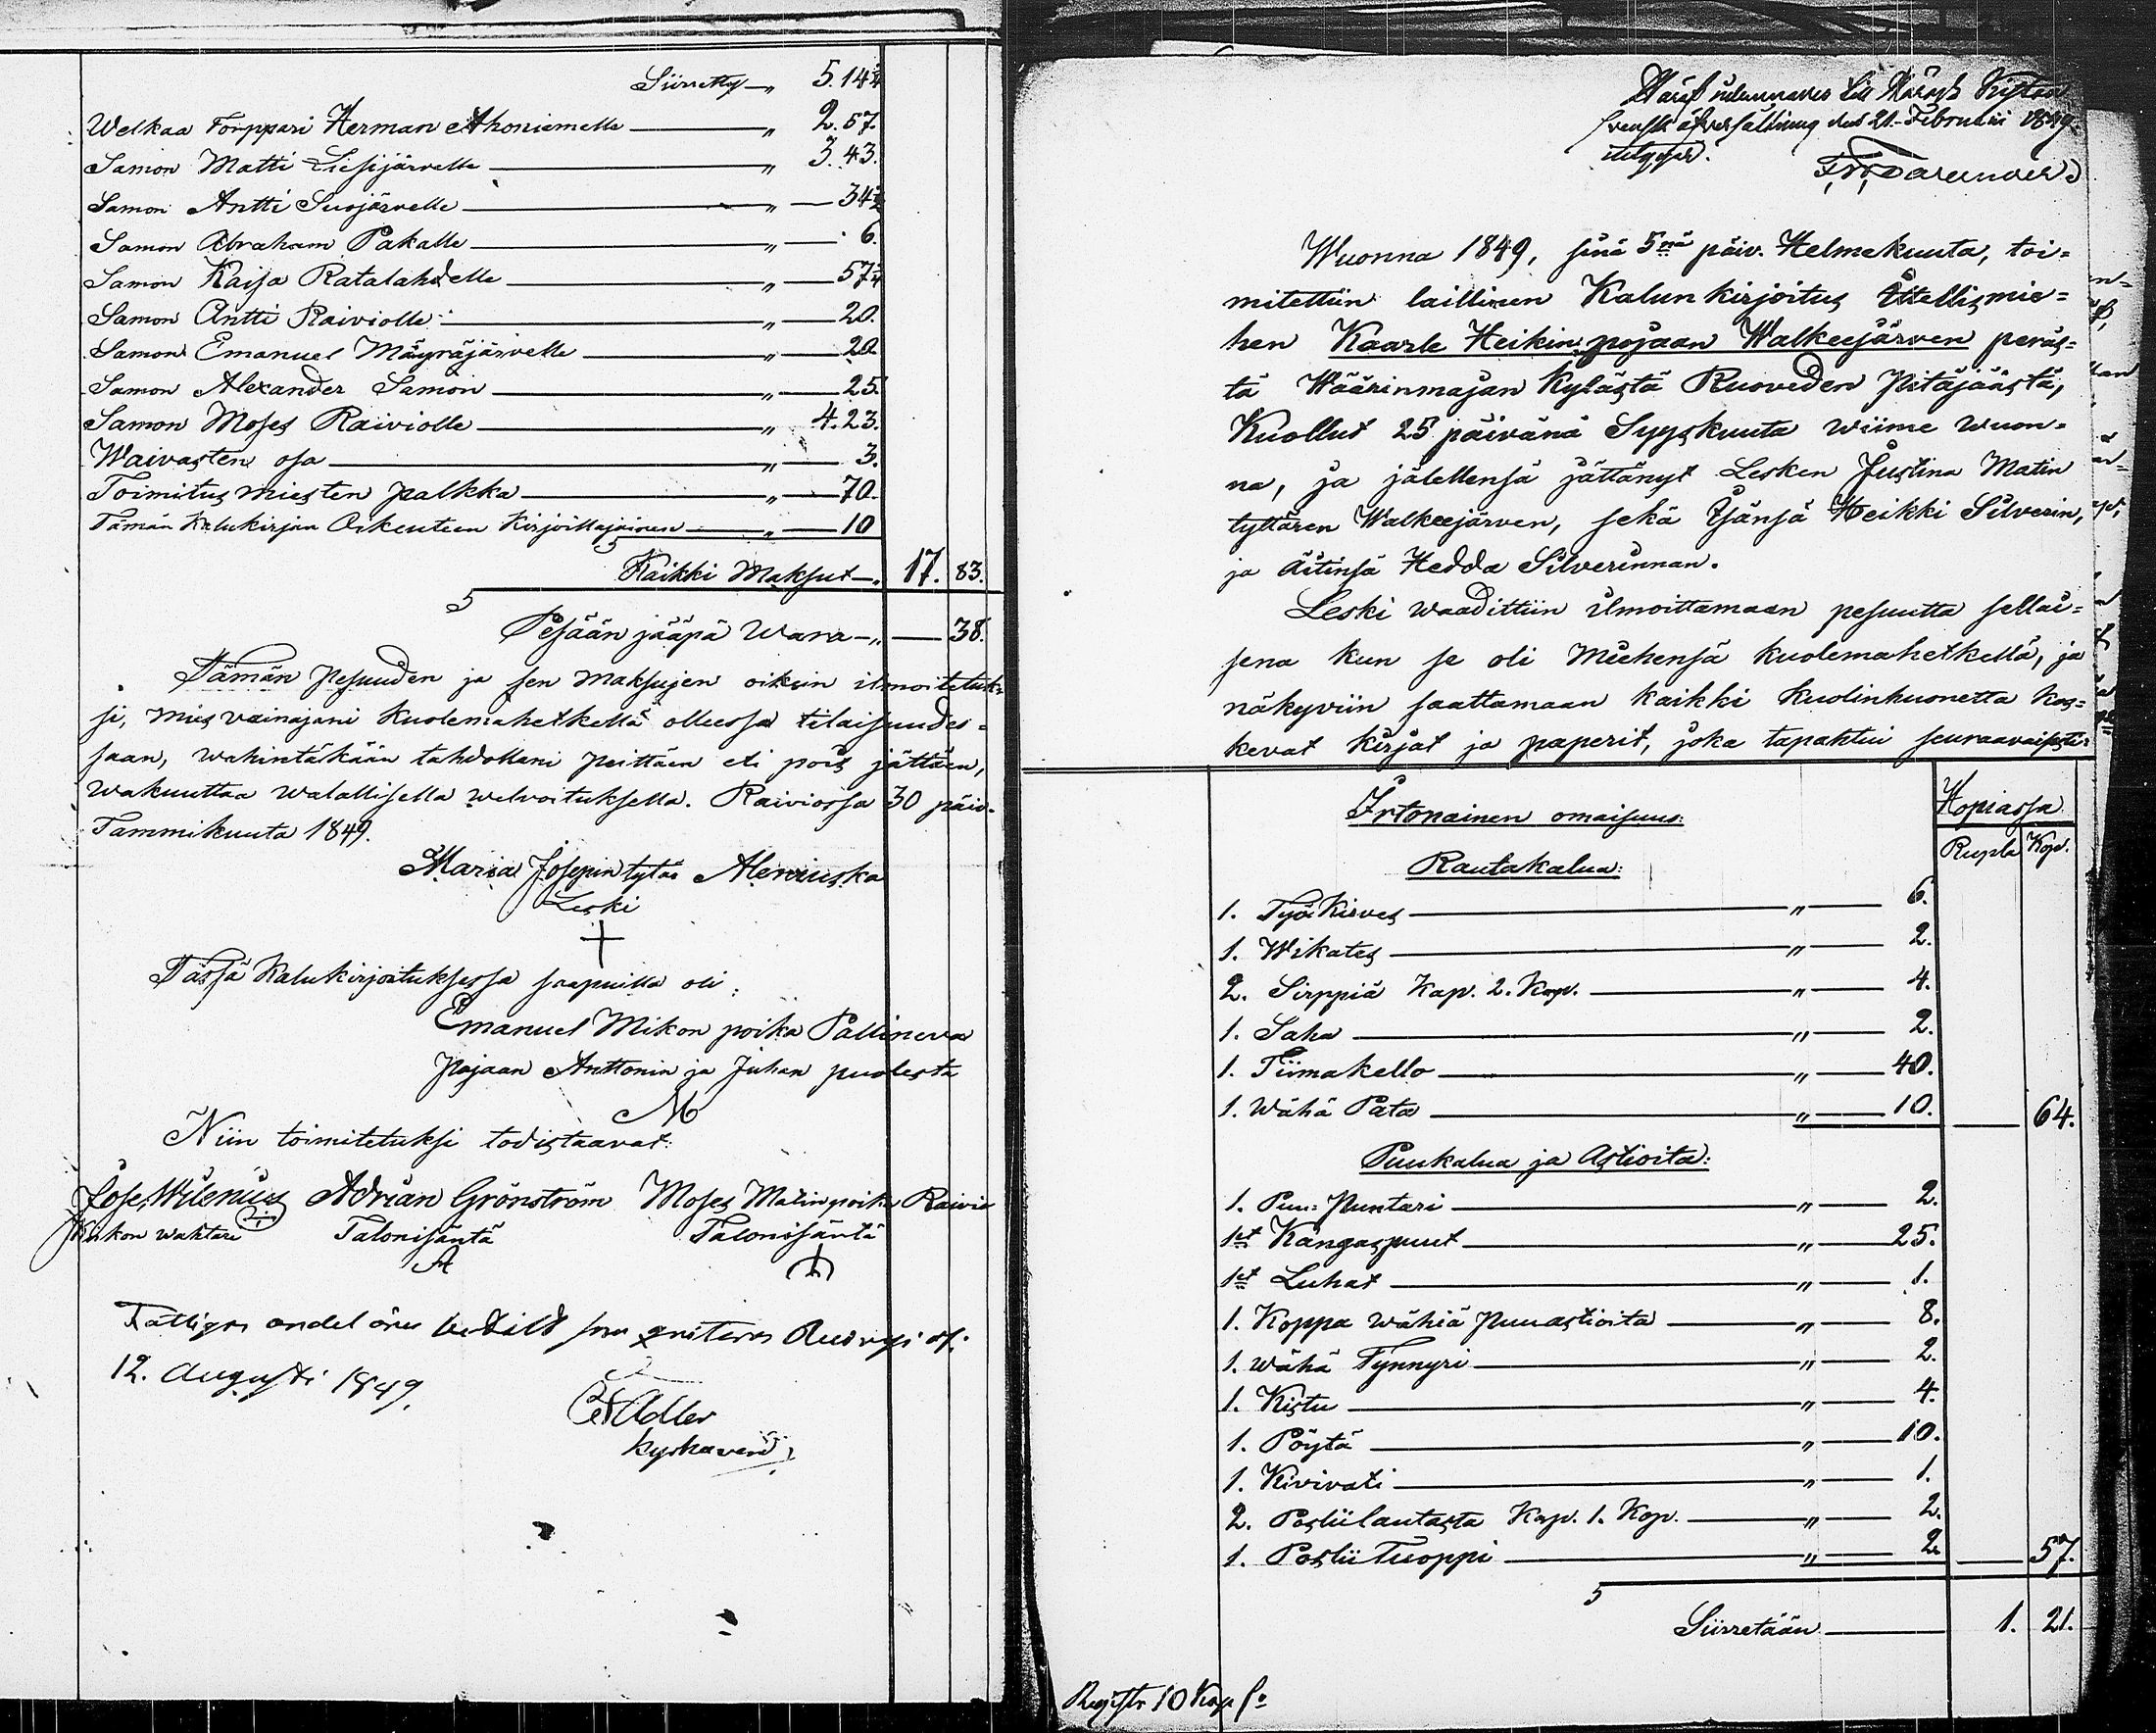 Siirretty — „ 5.14¼
Welkaa Torppari Herman Ahoniemelle — „ 2.57.
Samon Matti Liesijärvelle — „ 3.43.
Samon Antti Suojärvelle — „ — 34½
Samon Abraham Pakalle — „ — 6.
Samon Kaisa Ratalahdelle — „ — 57¼
Samon Antti Raiviolle — „ — 20.
Samon Emanuel Mäyräjärvelle — „ — 20.
Samon Alexander Samon — „ — 25.
Samon Moses Raiviolle — „ 4.23.
Waivasten osa — „ — 3.
Toimitusmiesten palkka — „ — 70.
Tämän Kalukirjan Oikeuteen Kirjoittajainen — „ — 10
Kaikki Maksut — „ 17. 83.
Pesään jääpä Wara — „ — 38.
Tämän pesuuden ja sen maksujen oikein ilmoitetuk-
si, miesvainajani kuolemahetkellä olleessa tilaisuudes-
saan, wähintäkään tahdollani peittäen eli pois jättäen,
wakuuttaa walallisella welvoituksella. Raiviossa 30 päiv.
Tammikuuta 1849.
Maria Josepin tytär
Leski
Tässä Kalukirjoituksessa saapuilla oli:
Emanuel Mikon poika Pallineva
Pojaan Anttonin ja Juhan puolesta
Niin toimitetuksi todistaavat:
Jose. Wilenius Adrian Grönström Moses Matin poika Raivio
Kirkon wahtari Talonisäntä Talonisäntä
A
Fattigas andel
12. Augusti 1849.
Adler
till
svensk öfversättning den 21. Februarii 1849.
Wuonna 1849, sinä 5nä päiv. Helmekuuta, toi-
mitettiin laillinen Kalunkirjoitus Ittellismie-
hen Kaarle Heikin pojaan Walkeejärven peräs-
tä Wäärinmajan Kylästä Ruoveden Pitäjäästä,
Kuollut 25 päivänä Syyskuuta wiime wuon-
na, ja jälellensä jättänyt Lesken Justina Matin
tyttären Walkeejärven, sekä Isänsä Heikki Silverin,
ja Äitinsä Hedda Silverinnan.
Leski waadittiin ilmoittamaan pesuutta sellai-
sena kun se oli Miehensä kuolemahetkellä, ja
näkyviin saattamaan kaikki kuolinhuonetta kos-
kevat kirjat ja paperit, joka tapahtui seuraavaisesti:
Irtonainen omaisuus: Hopiassa
Rupla Kop.
Rautakalua:
1. Työ Kirves — „ — 6.
1. Wikates — „ — 2.
2. Sirppiä Kap. 2. Kop. — „ — 4.
1. Saha — „ — 2.
1. Tiimakello — „ — 40.
1. Wähä Pata — „ — 10. — 64.
Puukalua ja Astioita:
1. Puu-Puntari — „ — 2.
1et Kangaspuut — „ — 25.
1et Luhat — „ — 1.
1. Koppa wähiä puuastioita — „ — 8.
1. Wähä Tynnyri — „ — 2.
1. Kistu — „ — 4.
1. Pöytä — „ — 10.
1. Kivivati — „ — 1.
2. Posliilautasta Kap. 1. Kop. — „ — 2.
1. Poslii Tuoppi — „ — 2. — 57.
Siirretään — 1. 21.
Registr 10 Kop